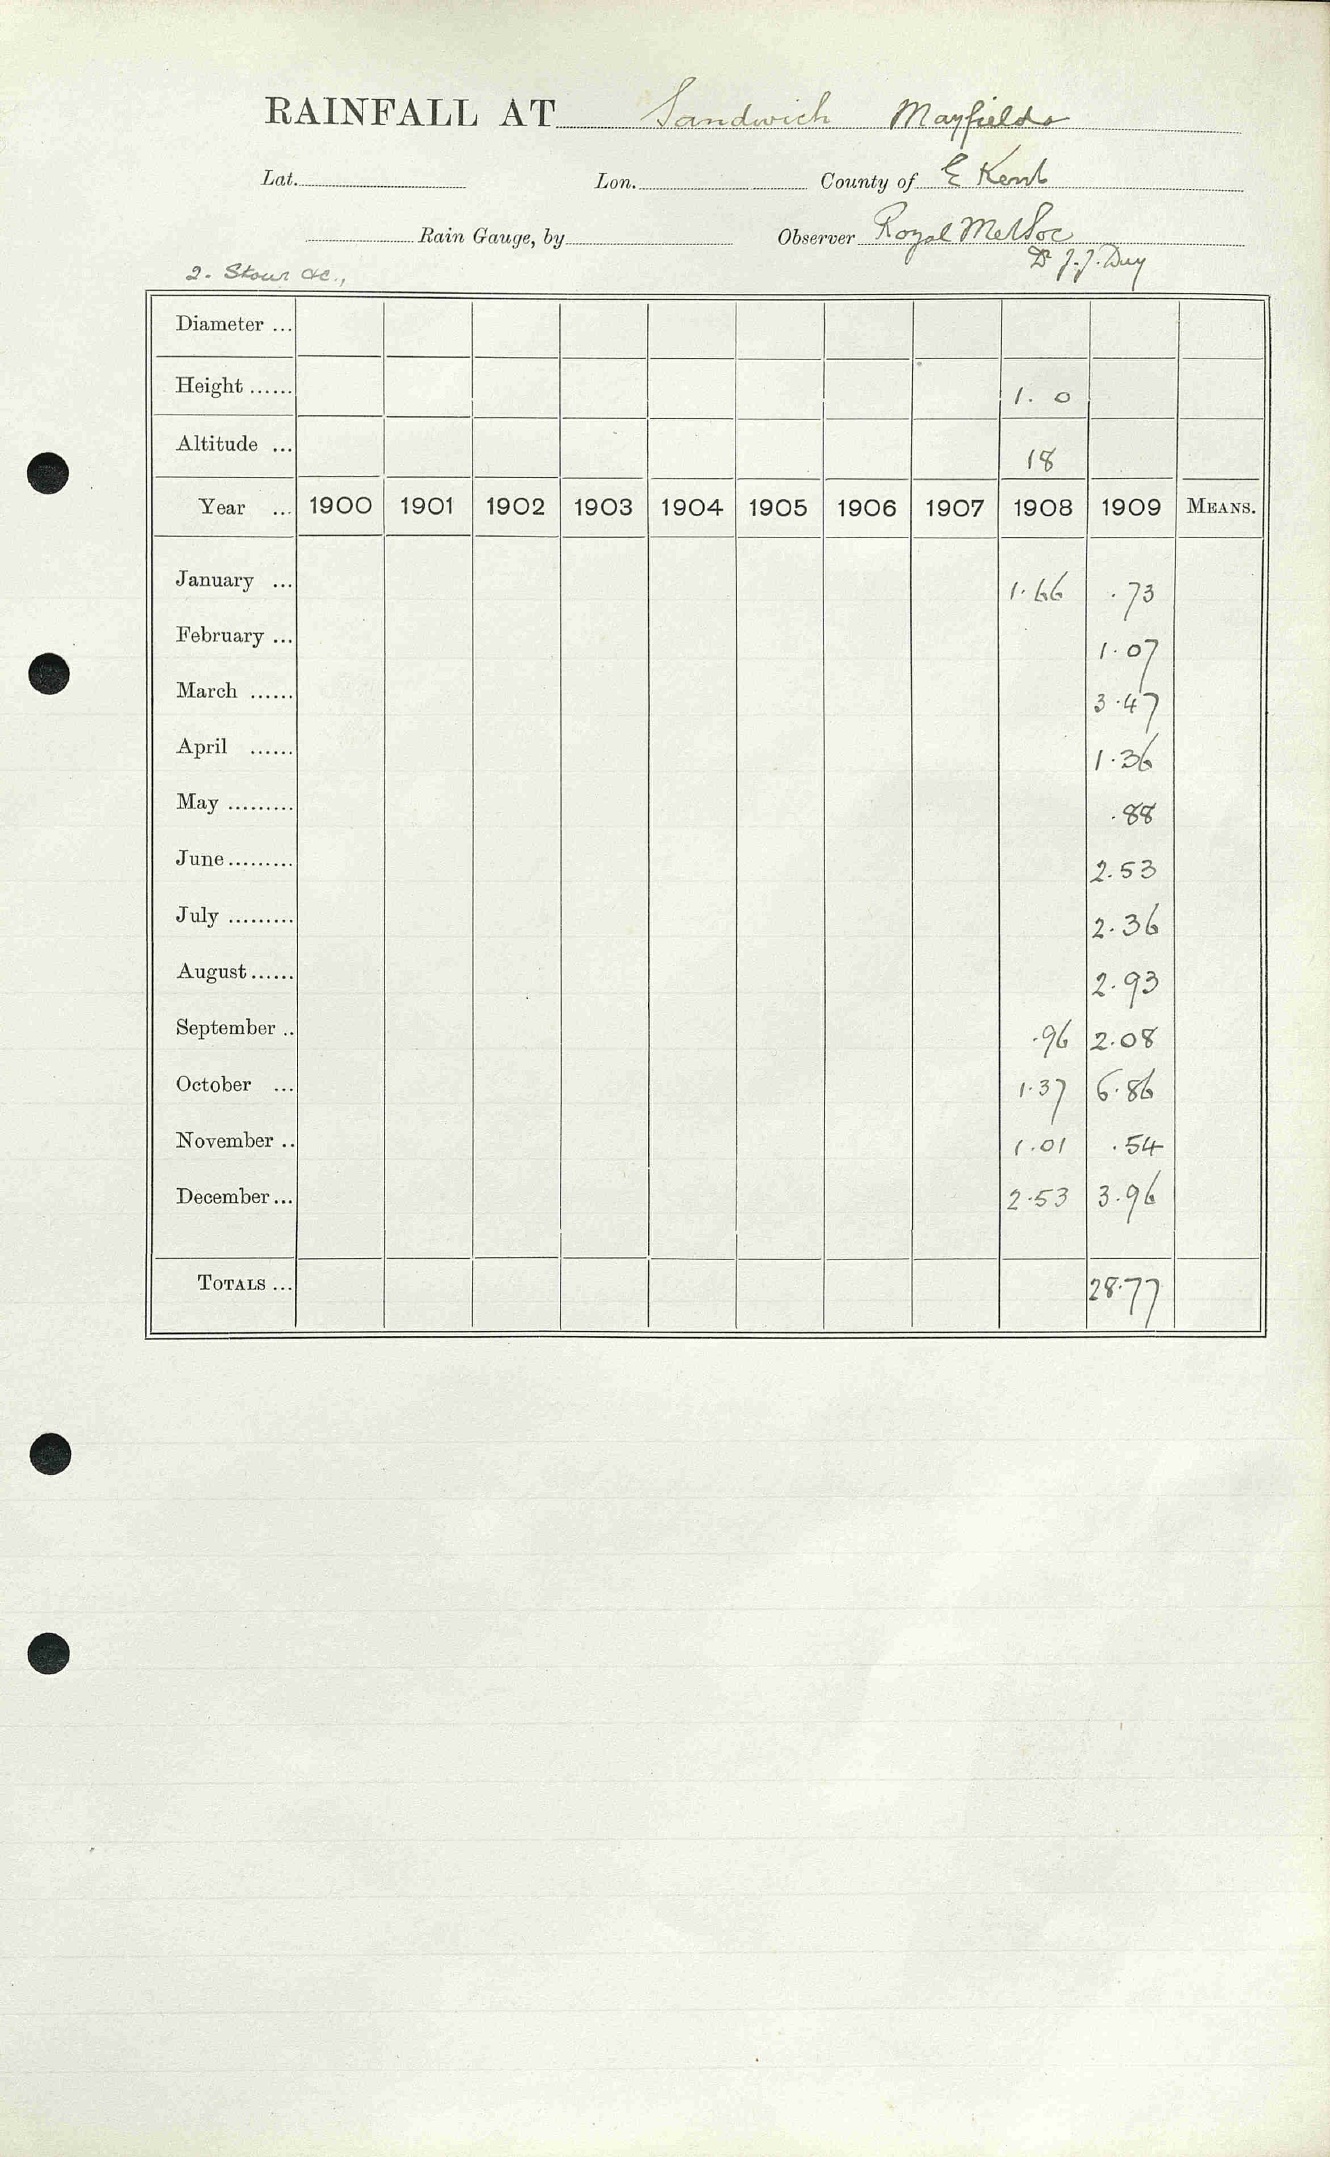 RAINFALL AT Sandwich Mayfields
Lat. Lon. County of E Kent
Rain Gauge, by Observer Royal Met Soc
2. Stour &c., Dr J. J. Day
Diameter ...
Height ...... 1. 0
Altitude ... 18
Year ... 1900 1901 1902 1903 1904 1905 1906 1907 1908 1909 MEANS.
January ... 1.66 .73
February ... 1.07
March ...... 3.47
April ...... 1.36
May ......... .88
June ......... 2.53
July ......... 2.36
August ...... 2.93
September .. .96 2.08
October ... 1.37 6.86
November .. 1.01 .54
December ... 2.53 3.96
TOTALS ... 28.77